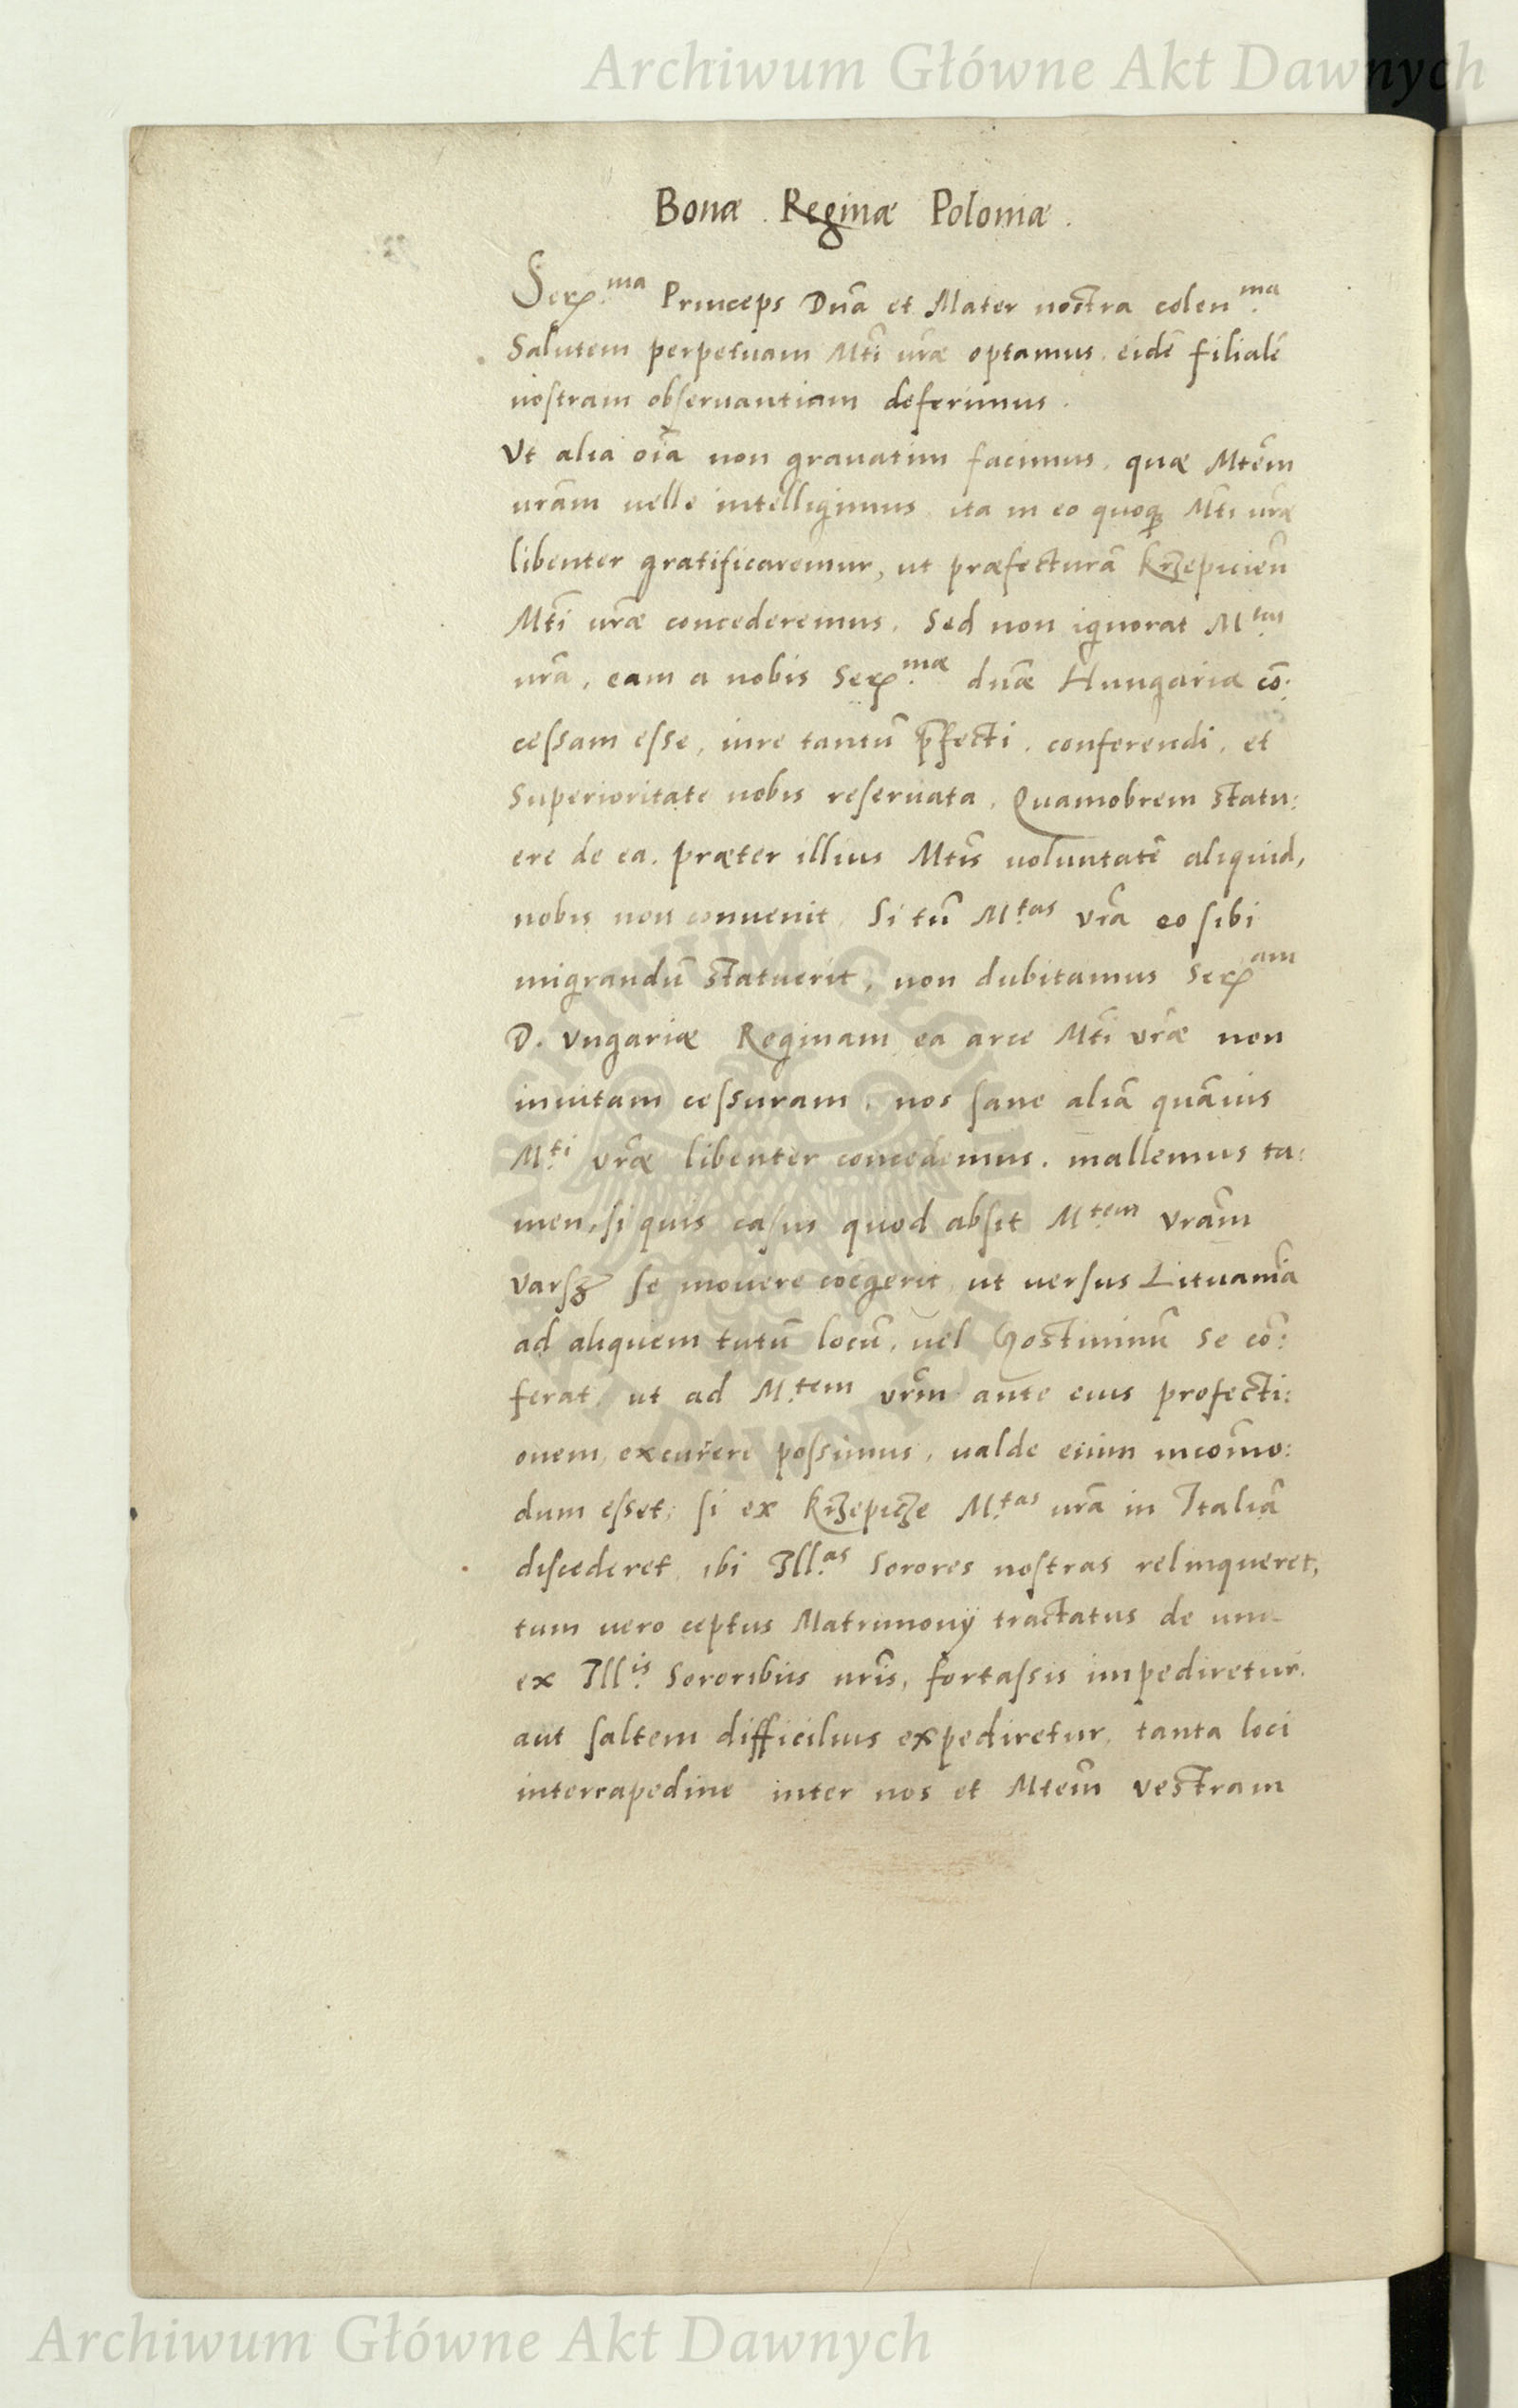 Archiwum Główne Akt Dawnych
Bonæ Reginæ Poloniæ.
Ser.ma Princeps Dnā et Mater nostra colen.ma
Salutem perpetuam Mtī vræ optamus. eidē filialē
nostram obseruantiam deferimus.
Vt alia oīa non grauatim facimus, quæ Mtēm
vrām uelle intelligimus, ita in eo quoqȝ Mtī vræ
libenter gratificaremur, ut præfecturā Krzepicien̄
Mtī vræ concederemus. Sed non ignorat M.tas
vrā, eam a nobis Ser.mæ dnæ Hungariæ cō:
cessam esse, iure tantū p̄fecti, conferendi, et
Superioritate nobis reseruata. Quamobrem statu:
ere de ea, præter illius Mtīs uoluntatē aliquid,
nobis non conuenit. Si tn̄ M.tas vrā eo sibi
migrandū statuerit, non dubitamus Ser.am
D. Vngariæ Reginam ea arce Mtī vræ non
inuitam cessuram, nos sane aliā quāuis
M.ti vræ libenter concedemus. mallemus ta:
men, si quis casus quod absit M.tem vrām
Varsz se mouere coegerit, ut uersus Lituaniā
ad aliquem tutū locū, uel Gostininū se cō:
ferat, ut ad M.tem vrm̄ ante eius profecti:
onem, excur̄ere possimus, ualde enim incom̄o:
dum esset, si ex Krzepicze M.tas vrā in Italiā
discederet, ibi Ill.as Sorores nostras relinqueret,
tum uero ceptus Matrimonÿ tractatus de una
ex Ill.is Sororibus nr̄is, fortassis impediretur,
aut saltem difficilius expediretur, tanta loci
intercapedine inter nos et Mtēm Vestram
ARCHIWUM GŁÓWNE AKT DAWNYCH
Archiwum Główne Akt Dawnych